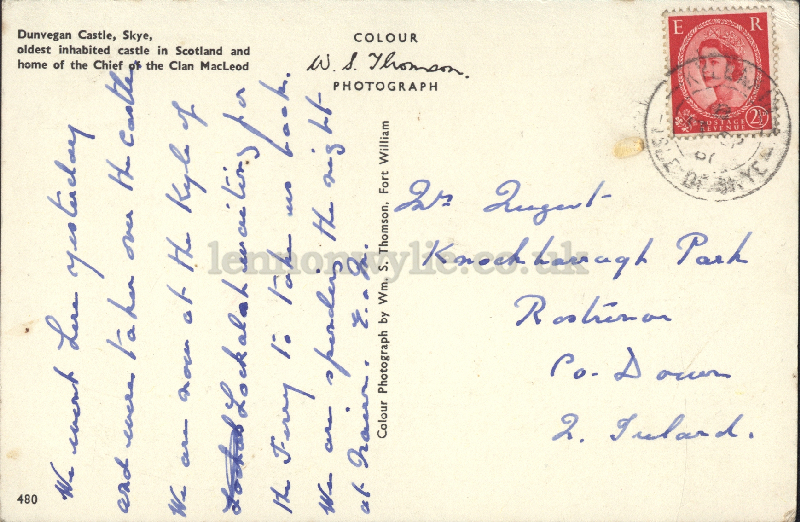 Dunvegan Castle, Skye,
oldest inhabited castle in Scotland and
home of the Chief of the Clan MacLeod
COLOUR
W. S. Thomson.
PHOTOGRAPH
E R
POSTAGE
REVENUE
2½D
ISLE OF SKYE
We went here yesterday
and were taken over the castle.
We are now at the Kyle of
Lochalsh waiting for
the Ferry to take us back.
We are spending the night
at Nairn.
Colour Photograph by Wm. S. Thomson, Fort William
Mrs Nugent
Knockbarragh Park
Rostrevor
Co. Down
N. Ireland.
480
lennonwylie.co.uk